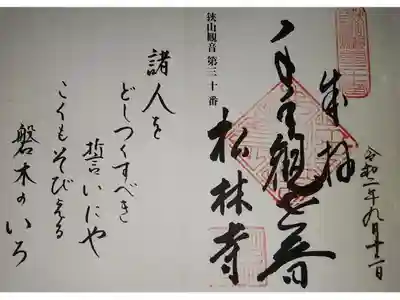 奉拝
令和一年九月十二日
観世音
狭山観音第三十番
松林寺
諸人を
どしつくすべき
誓いにや
こくもそびえる
磐木のいろ